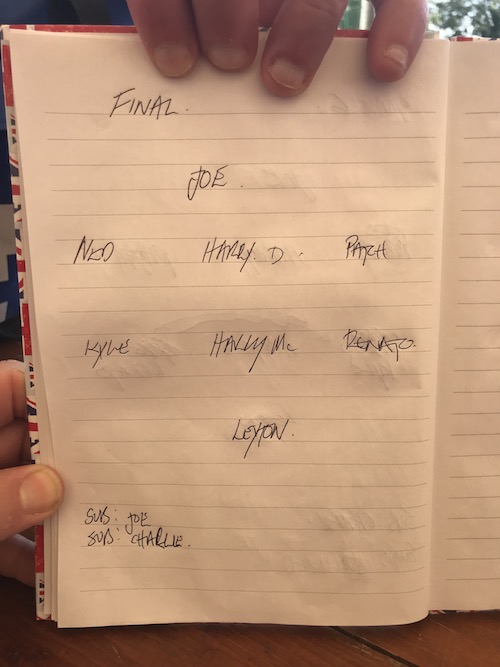 FINAL.
JOE.
NED HARRY. D. PATCH
KYLE HARRY Mc RENATO.
LEYTON.
SUB: JOE
SUB: CHARLIE.